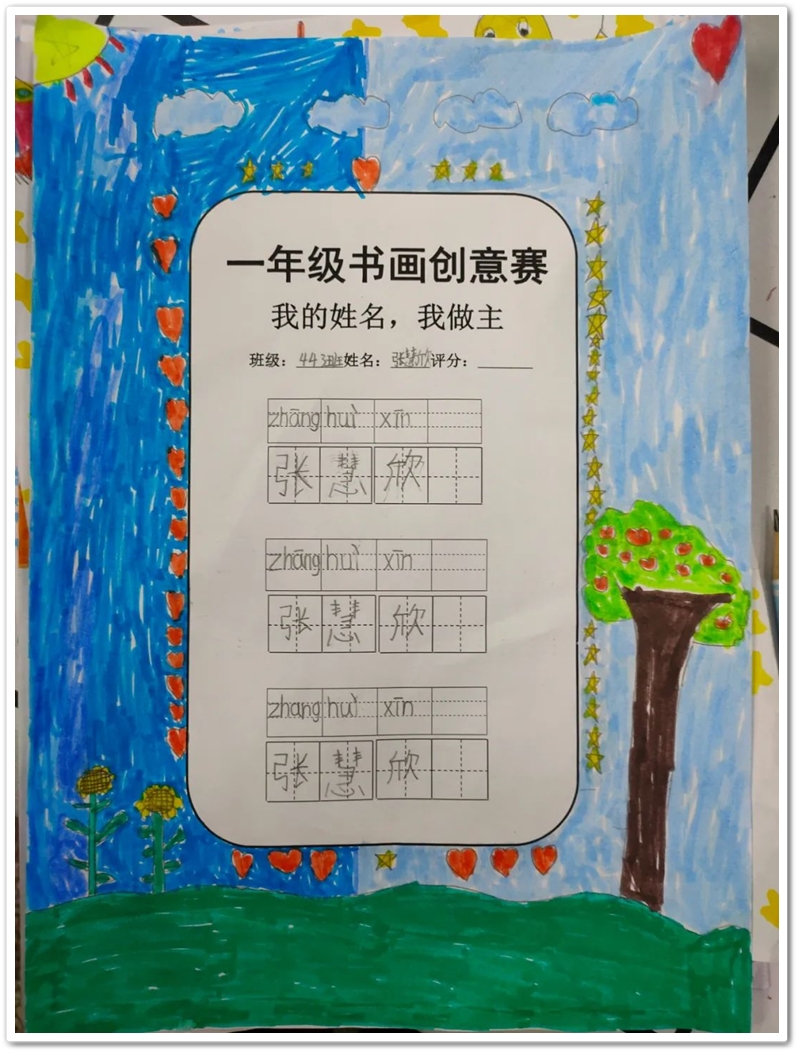 一年级书画创意赛
我的姓名，我做主
班级：443班姓名：张慧欣评分：
zhāng huì xīn
张慧欣
zhāng huì xīn
张慧欣
zhang huì xīn
张慧欣